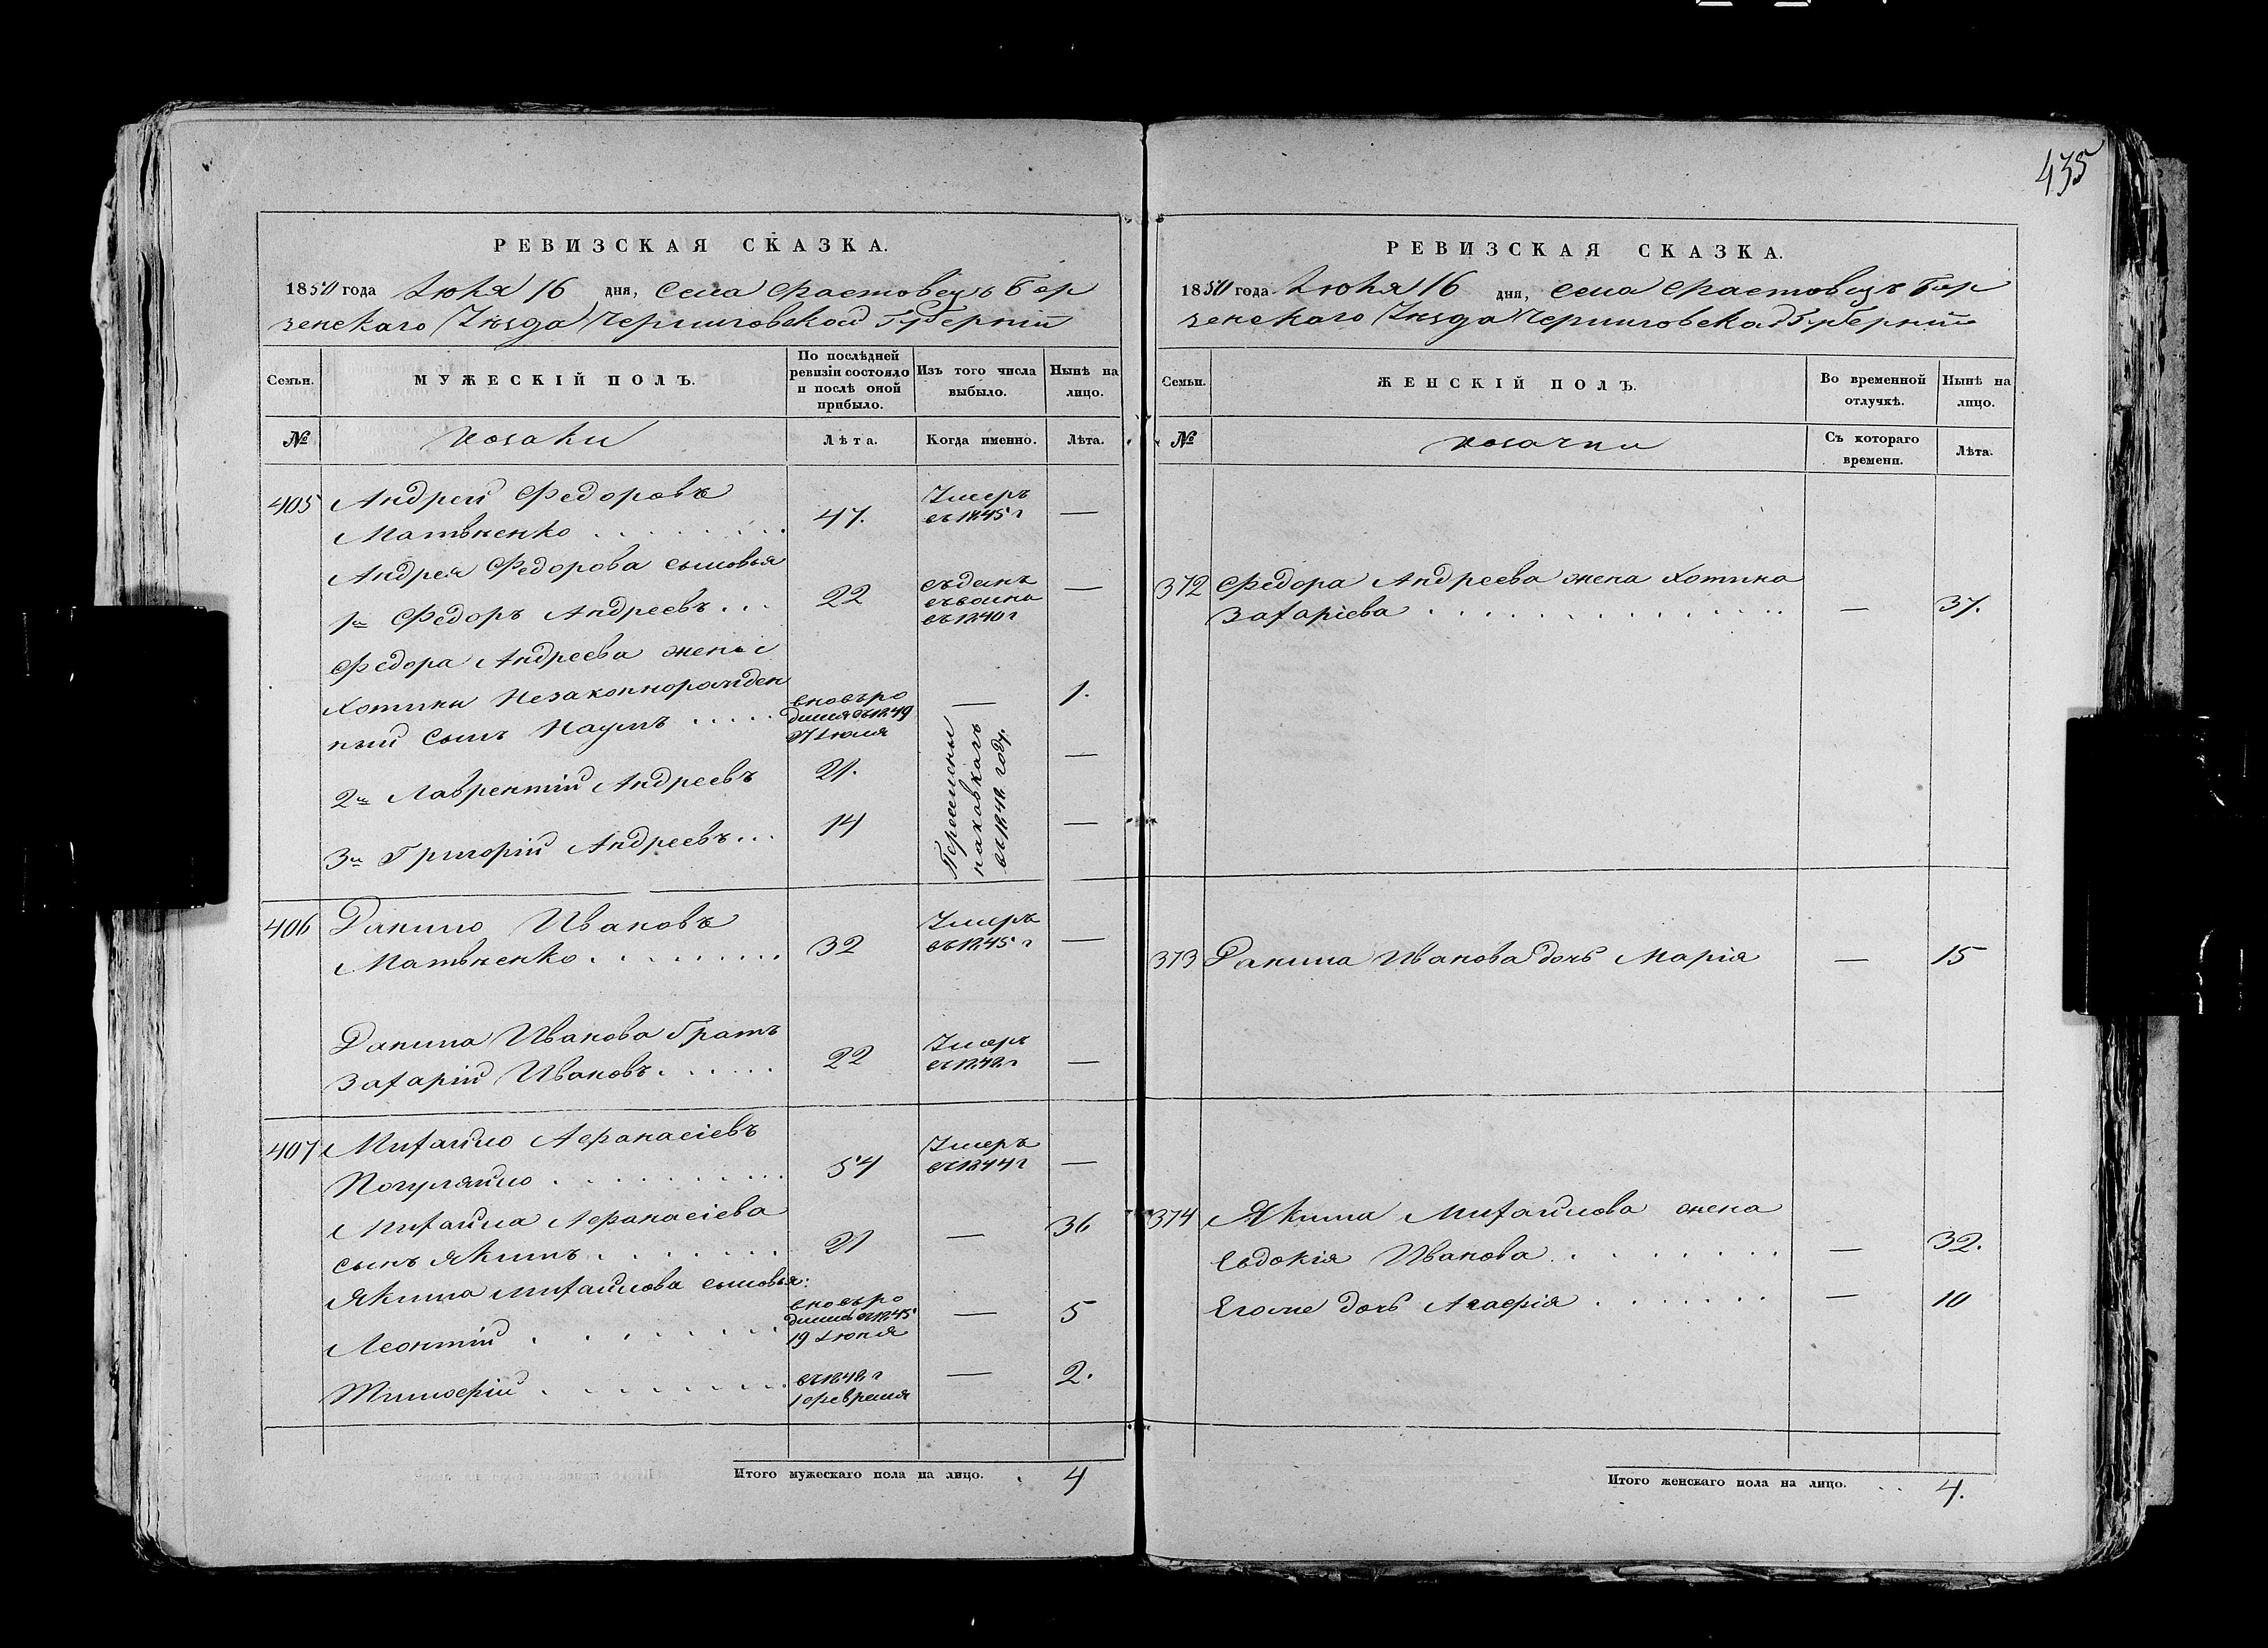 435
РЕВИЗСКАЯ СКАЗКА.
1850 года Июня 16 дня, села Фастовецъ Бор
зенскаго Уѣзда Черниговской Губерніи
Семьи. МУЖЕСКІЙ ПОЛЪ. По послѣдней ревизіи состояло и послѣ оной прибыло. Изъ того числа выбыло. Нынѣ на лицо.
№ Козаки Лѣта. Когда именно. Лѣта.
405 Андрей Федоровъ
Матвѣенко 47. Умеръ въ 1845 г —
Андрея Федорова сыновья
1й Федоръ Андреевъ 22 въ 1840 г —
Федора Андреева жены
Хотины Незаконнорожден
ный сынъ Наумъ вновь ро
дился въ 1849
27 Июля — 1.
2й Лаврентій Андреевъ 21. —
3й Григорій Андреевъ 14 —
Переселены
на кавказъ
въ 1848 году.
406 Данило Ивановъ
Матвѣенко 32 Умеръ въ 1845 г —
Данила Иванова братъ
Захарій Ивановъ 22 Умеръ въ 1848 г —
407 Михайло Афанасіевъ
Погуляйло 54 Умеръ въ 1844 г —
Михайла Афанасіева
сынъ Якимъ 21 — 36
Якима Михайлова сыновья:
Леонтій вновь ро
дился въ 1845
19 Июня — 5
Тимофій въ 1848 г
1 февраля — 2.
Итого мужескаго пола на лицо. 4
РЕВИЗСКАЯ СКАЗКА.
1850 года Июня 16 дня, села Фастовецъ Бор
зенскаго Уѣзда Черниговской Губерніи
Семьи. ЖЕНСКІЙ ПОЛЪ. Во временной отлучкѣ. Нынѣ на лицо.
№ Козачки Съ котораго времени. Лѣта.
372 Федора Андреева жена Хотина
Захаріева — 37.
373 Данила Иванова дочь Марія — 15
374 Якима Михайлова жена
Евдокія Иванова — 32.
Егоже дочь Агафія — 10
Итого женскаго пола на лицо. 4.